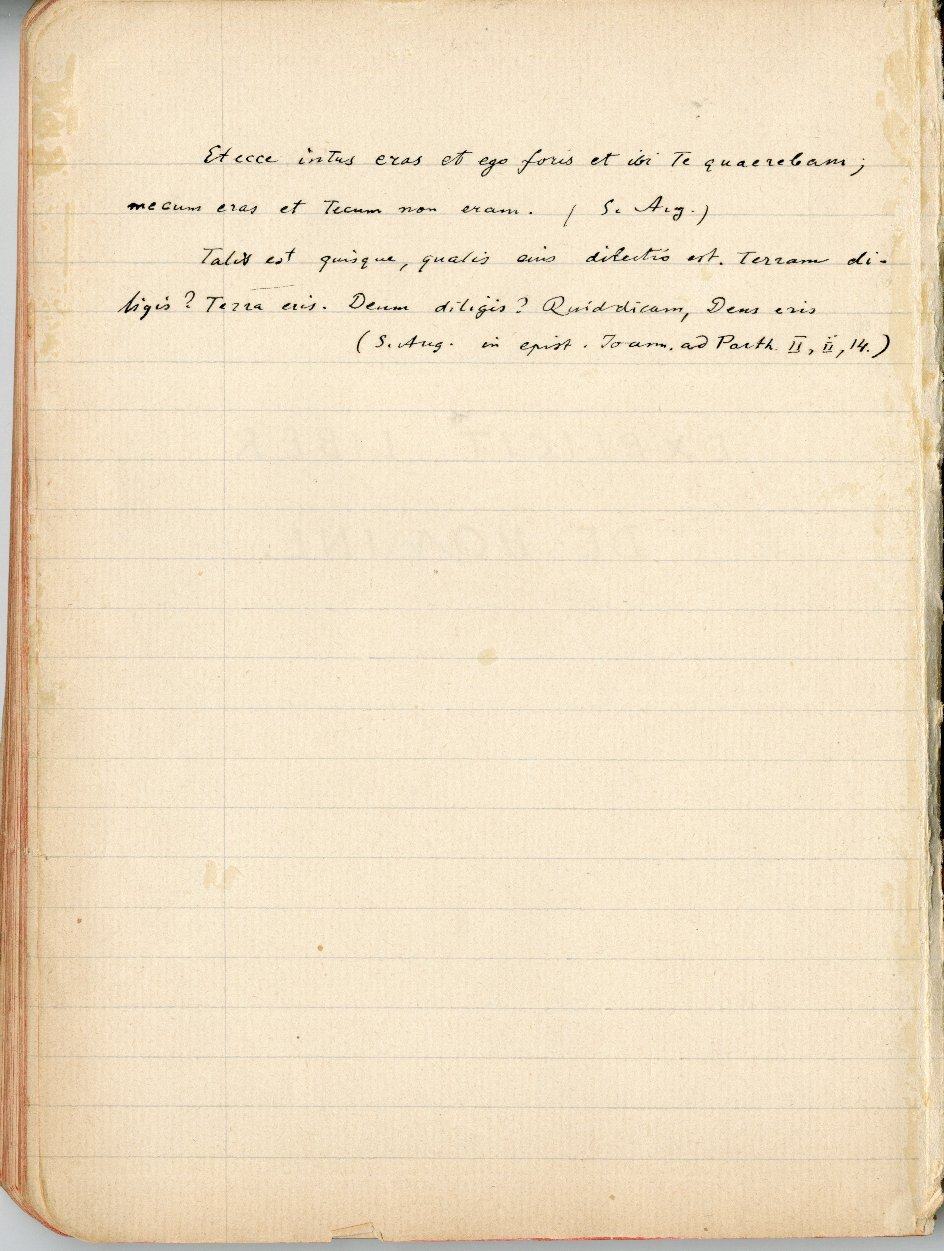 Et ecce intus eras et ego foris et ibi Te quaerebam;
mecum eras et Tecum non eram. ( S. Aug.)
Talis est quisque, qualis eius dilectio est. Terram di-
ligis? Terra eris. Deum diligis? Quid dicam, Deus eris
(S. Aug. in epist. Joann. ad Parth. II, ii, 14.)
EXPLICIT LIBER
DE HOMINE